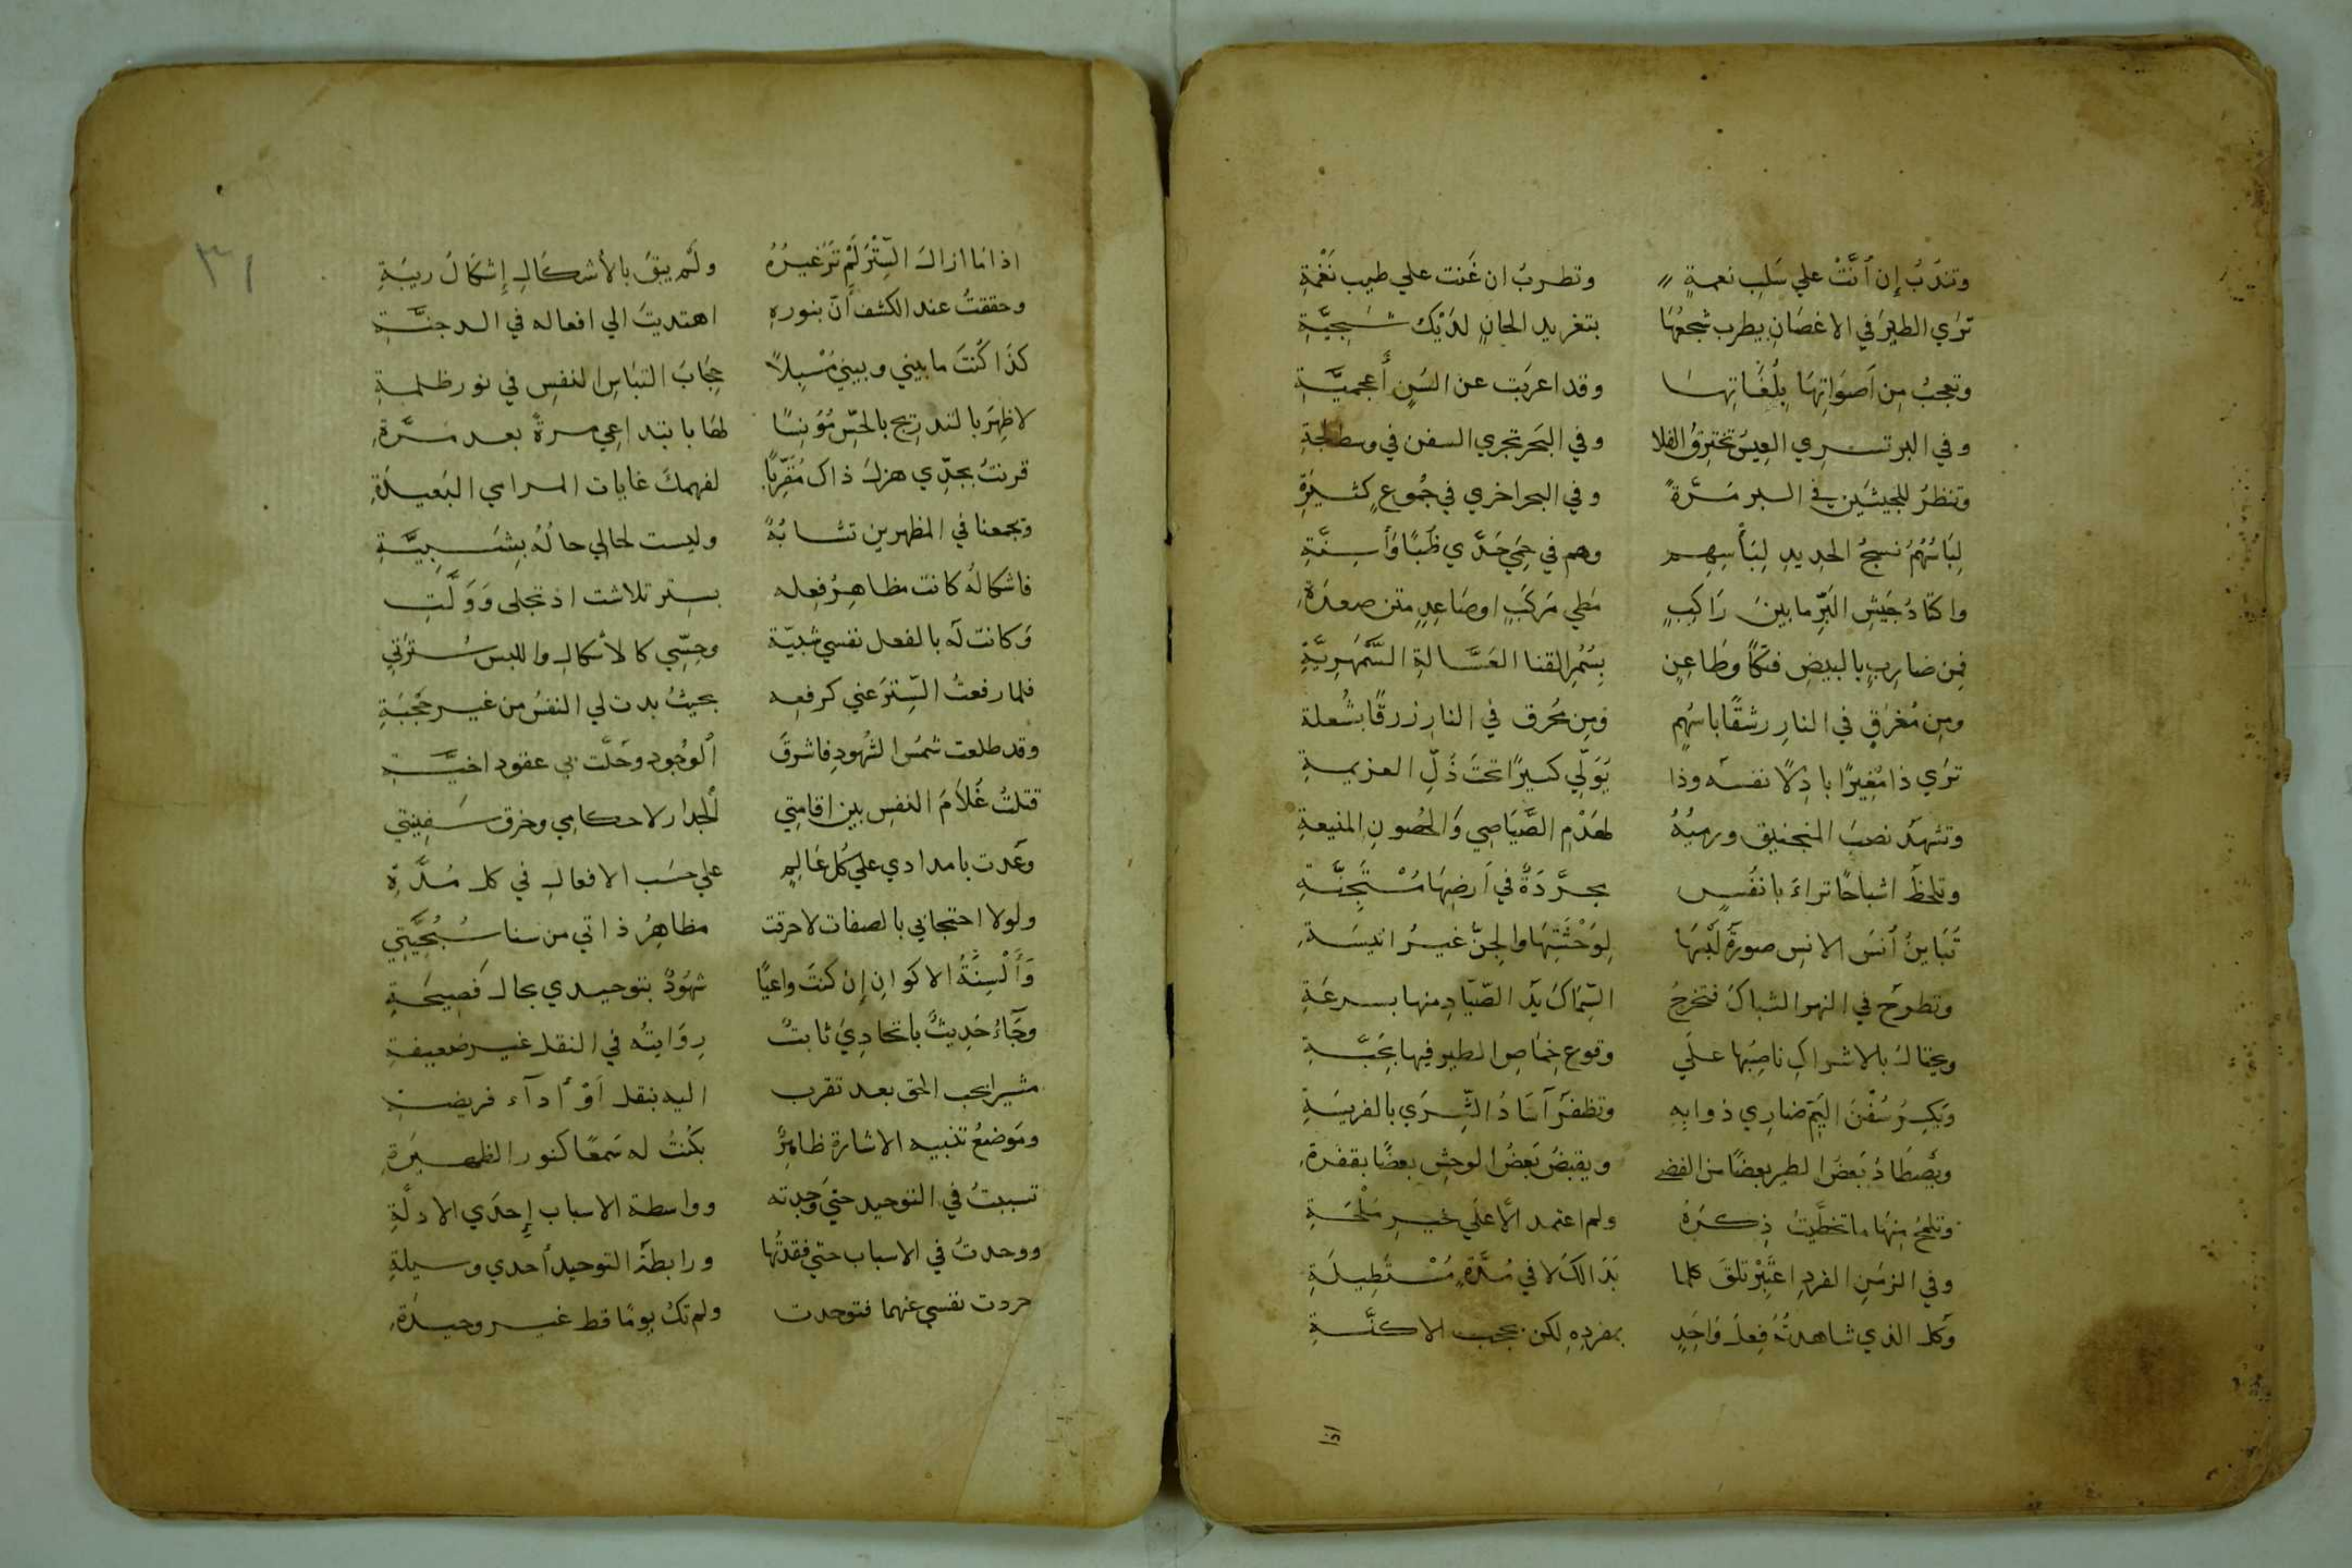 وتندَبُ إِن أنَّتْ علي سَلبِ نعمةٍ وتطربُ ان غَنت علي طيب نَغْمَةِ
تَرَي الطيرَ في الاغصَانِ يطرب سَجعُهَا بتغريد الحانٍ لدَيْكَ شَجِيَّةِ
وتعجبُ مِن اَصوَاتِهَا بِلُغَاتِهَا وقد اعرَبَت عن السَنٍ أَعجميَّةِ
وفي البر تسري العِيسُ تخترِقُ الفلا وفي البَحر تجري السفن في وسط لجةِ
وتنظرُ للجيشَين في البر مَرَّةً وفي البحر اخري في جُموعٍ كثيرَةِ
لِبَاسُهُمُ نسجُ الحديدِ لِبَأْسِهِم وهم في حِمَي حَدَّي ظُبًا وَأَسِنَّةِ
واكنَادُ جَيشِ البَرِّ ما بينَ رَاكِبٍ مَطي مَركَبٍ او صَاعِدٍ متن صعدَةِ
فمِن ضارِبٍ بالبيضِ فتكًا وطَاعِنٍ بِسُمْرِ القنا العَسَّالةِ السَّمْهَرِيَّةِ
ومِن مُغرَقٍ في النارِ رشقًا باسهُمٍ ومِن مُحرَق في النارِ زرقًا بشُعلة
تَرَي ذا مُغِيرًا باذِلًا نفسَه وذا يُوَلّي كسيرًا تحتَ ذُلِّ الهزيمةِ
وتشهدُ نصبَ المنجنيق ورميُهُ لهَدْمِ الصَّيَاصِي وَالحُصونِ المنيعةِ
وتلحظُ اشباحًا تراءَ بانفُسٍ مجرَّدَةٌ في اَرضِهَا مُسْتَجِنَّةِ
تُبَاينُ أنسَ الانس صورةُ لَبْسِهَا لِوَحْشَتِهَا والجنّ غيرُ انيسَةِ
وتطرحُ في النهر الشباكَ فتخرجُ السّمَاكَ يَدُ الصّيّادِ منها بسرعَةِ
ويحتالُ بالاشراكِ ناصِبُها علَي وقوعِ خِمَاصِ الطير فيها بحَبَّةِ
وَيكسِرُ سُفْنَ اليَمِّ ضاري ذوابِهِ وتظفَرُ آسَادُ الشِّرَي بالفريسَةِ
ويَصطَادُ بَعضُ الطيرِ بعضًا من الفضَا ويقبِضُ بَعضُ الوحشِ بعضًا بقفرةِ
وتلمَحُ مِنهَا ما تخطَّيتُ ذِكرَهُ ولم اعتمد الّا علَي خيرِ مَلْحَةِ
وفي الزمَنِ الفردِ اعتَبِرْ تلقَ كلما بَدَا لكَ لا في مُدَّةٍ مُسْتَطِيلَةِ
وَكل الذي شاهدتَهُ فِعلُ وَاحِدٍ بمفردِهِ لكن بحجب الاكنَّةِ
اذا
٣١
اذا مَا ازالَ السِّتْرَ لَمْ تَرَ غيرُهُ ولَم يبقَ بالأشكَالِ إِشكَالُ ريبَةِ
وحققتُ عند الكشف أَنّ بنورهِ اهتديتَ الي افعاله في الدجنَّةِ
كذَا كُنتَ ما بيني وبيني مُسْبِلًا حِجَابَ التبَاسِ النفسِ في نور ظلمةِ
لاظهَرَ بالتدريج بالحِسِّ مُؤنِسًا لهَا بابتداعِي مرةً بعد مَرَّةِ
قرنتُ بجدّي هزلَ ذاك مُقَرّبًا لفهمكَ غايات المرامي البَعيدَةِ
وتجمعنا في المظهرين تشابُهٌ وليست لحالي حالُهُ بِشَبِيَّةِ
فاشكالُه كانت مظاهِرُ فعله بسِتر تلاشت اذ تجلي وَوَلَّتِ
وَكانت لَه بالفعل نفسي شبيّة وحِسّي كالأشكال واللبس سُترَتي
فلما رفعتُ السِّترَ عني كرفعِه بحيثُ بدت لي النفسُ من غير حُجْبَةِ
وقد طلعت شمسُ الشُهودِ فاشرقَ ٱلوُجود وحَلَّت بي عقود اخيَّةِ
قتلتُ غُلَامَ النفسِ بين اقامتِي ٱلجِدار لاحكامِي وخرق سَفِينتي
وعَدت بامدادي علي كل عَالِمٍ علي حسَب الافعالِ في كل مُدَّةِ
ولولا احتجابي بالصفات لاحرقت مظاهِرُ ذاتي من سنا سُبُحَيَّتِي
وَأَلْسِنَةُ الاكوانِ إن كنتَ واعيًا شهُودٌ بتوحيدي بحالٍ فَصِيحَةِ
وجَآءَ حَدِيثٌ باتحادِيَ ثابتٌ رِوَايتُه في النقل غير ضعيفةِ
مشيرا بحب الحق بعد تقرب اليه بنقل اَوْ أَدآء فريضةِ
ومَوضِعُ تنبيه الاشارة ظاهِرٌ بكُنتُ له سَمعًا كنور الظهيرَةِ
تسببتُ في التوحيد حتي وَجدته وواسطة الاسباب إِحدَي الادلَّةِ
ووحدتُ في الاسباب حتي فقدتُها ورابطَةُ التوحيد أحدي وسيلةِ
جردت نفسي عنهما فتوحدت ولم تكُ يومًا قط غير وحيدَةِ